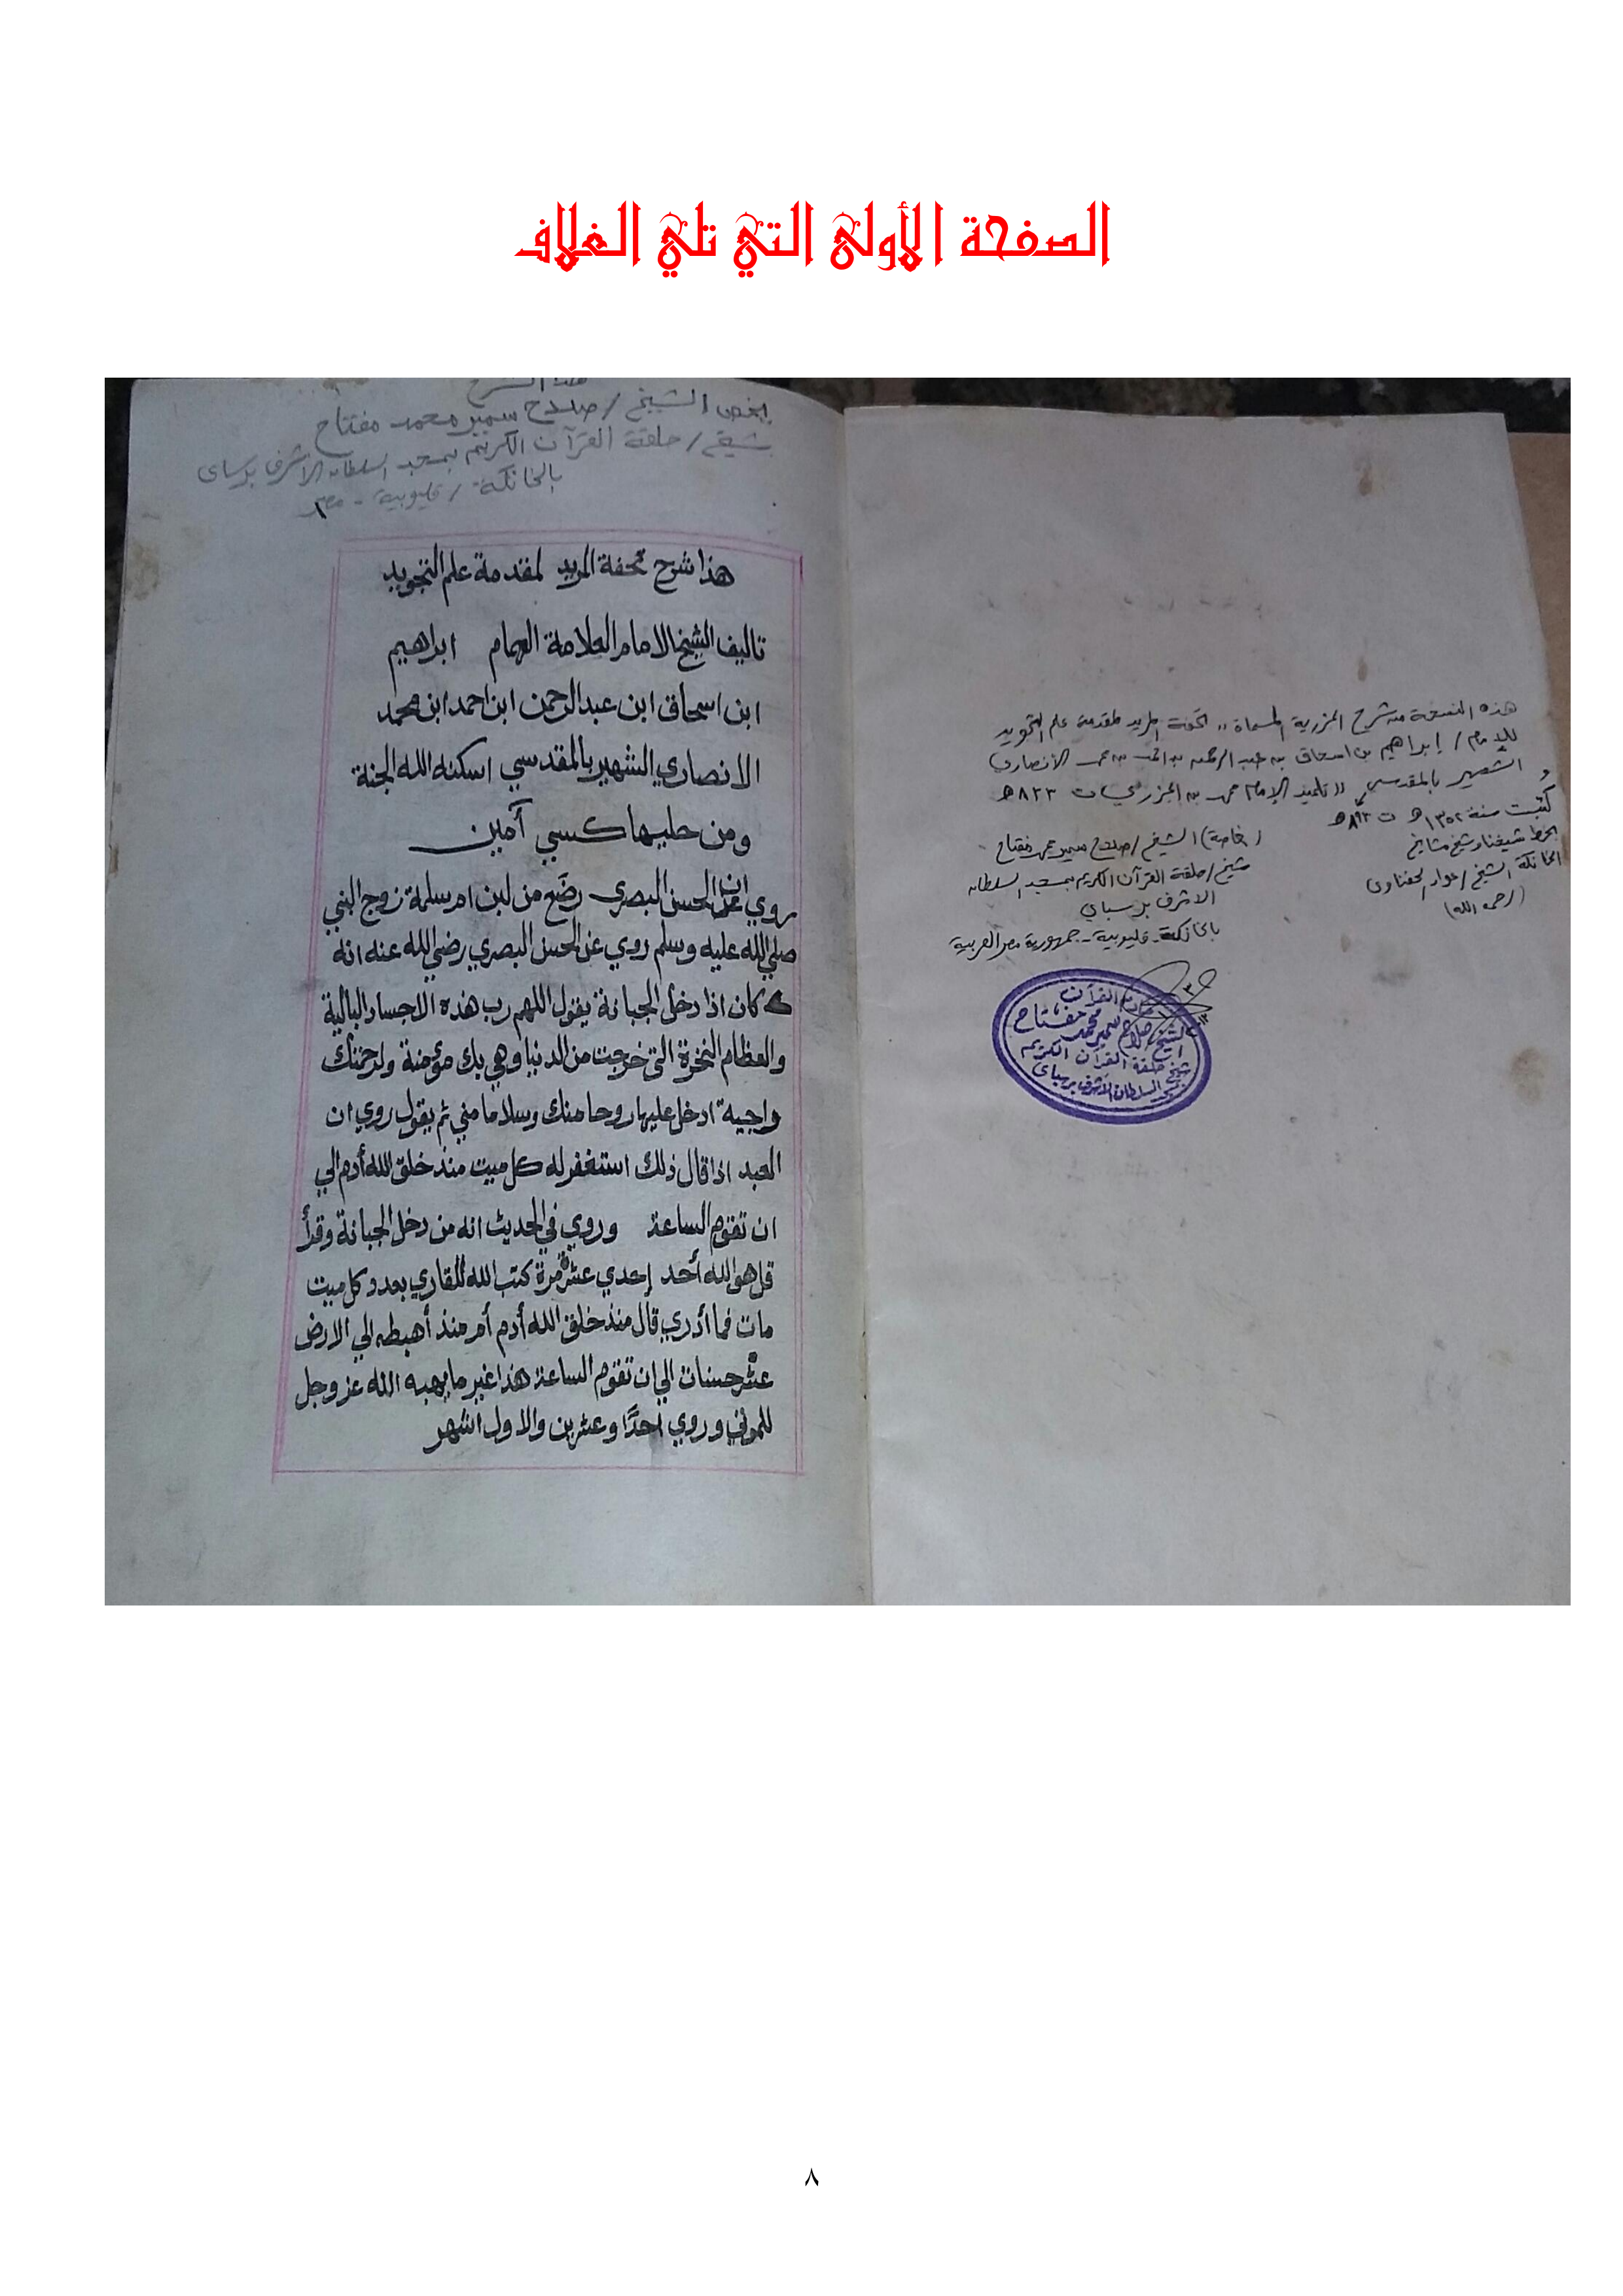 الصفحة الأولى التي تلي الغلاف
هذه النسخة من شرح الجزرية المسماة ,, تحفة المريد لمقدمة علم التجويد
للإمام / إبراهيم بن اسحاق بن عبد الرحمن بن احمد بن محمد الأنصاري
الشهير بالمقدسي ,, تلميذ الإمام محمد بن الجزري ت ٨٣٣ هـ
ت ٨٩٣ هـ
و
كتبت سنة ١٣٥٢ هـ
بخط شيخنا وشيخ مشايخ
الخانكة الشيخ / جواد الحفناوى
(رحمه الله)
(خاصة) الشيخ / صلاح سمير محمد مفتاح
شيخ / حلقة القرآن الكريم بمسجد السلطان
الاشرف برسباي
بالخانكة - قليوبية - جمهورية مصر العربية
القرآن
الشيخ / صلاح سمير محمد مفتاح
شيخ حلقة القرآن الكريم
بمسجد السلطان الأشرف برسباى
هذا الشرح
يخص الشيخ / صلاح سمير محمد مفتاح
شيخ / حلقة القرآن الكريم بمسجد السلطان الأشرف برسباى
بالخانكة / قليوبية - مصر
هذا شرح تحفة المريد لمقدمة علم التجويد
تاليف الشيخ الامام العلامة الهمام ابراهيم
ابن اسحاق ابن عبد الرحمن ابن احمد ابن محمد
الانصاري الشهير بالمقدسي اسكنه الله الجنة
ومن حليها كسي آمين
روي ان الحسن البصري رضَع من لبن ام سلمة زوج النبي
صلي الله عليه وسلم روي عن الحسن البصري رضي الله عنه انه
كان اذا دخل الجبانة يقول اللهم رب هذه الاجساد البالية
والعظام النخرة التى خرجت من الدنيا وهي بك مؤمنة ولرحمتك
واجية ادخل عليها روحا منك وسلاما مني ثم يقول روي ان
العبد اذا قال ذلك استغفر له كل ميت منذ خلق الله أدم الي
ان تقوم الساعة وروي في الحديث انه من دخل الجبانة وقرأ
قل هو الله أحد إحدي عشرة مرة كتب الله للقاري بعدد كل ميت
مات فما أدري قال منذ خلق الله أدم أم منذ أهبطه الي الارض
عشر حسنات الي ان تقوم الساعة هذا غير ما يهبه الله عز وجل
للموتي وروي أحدًا وعشرين والاول اشهر
٨